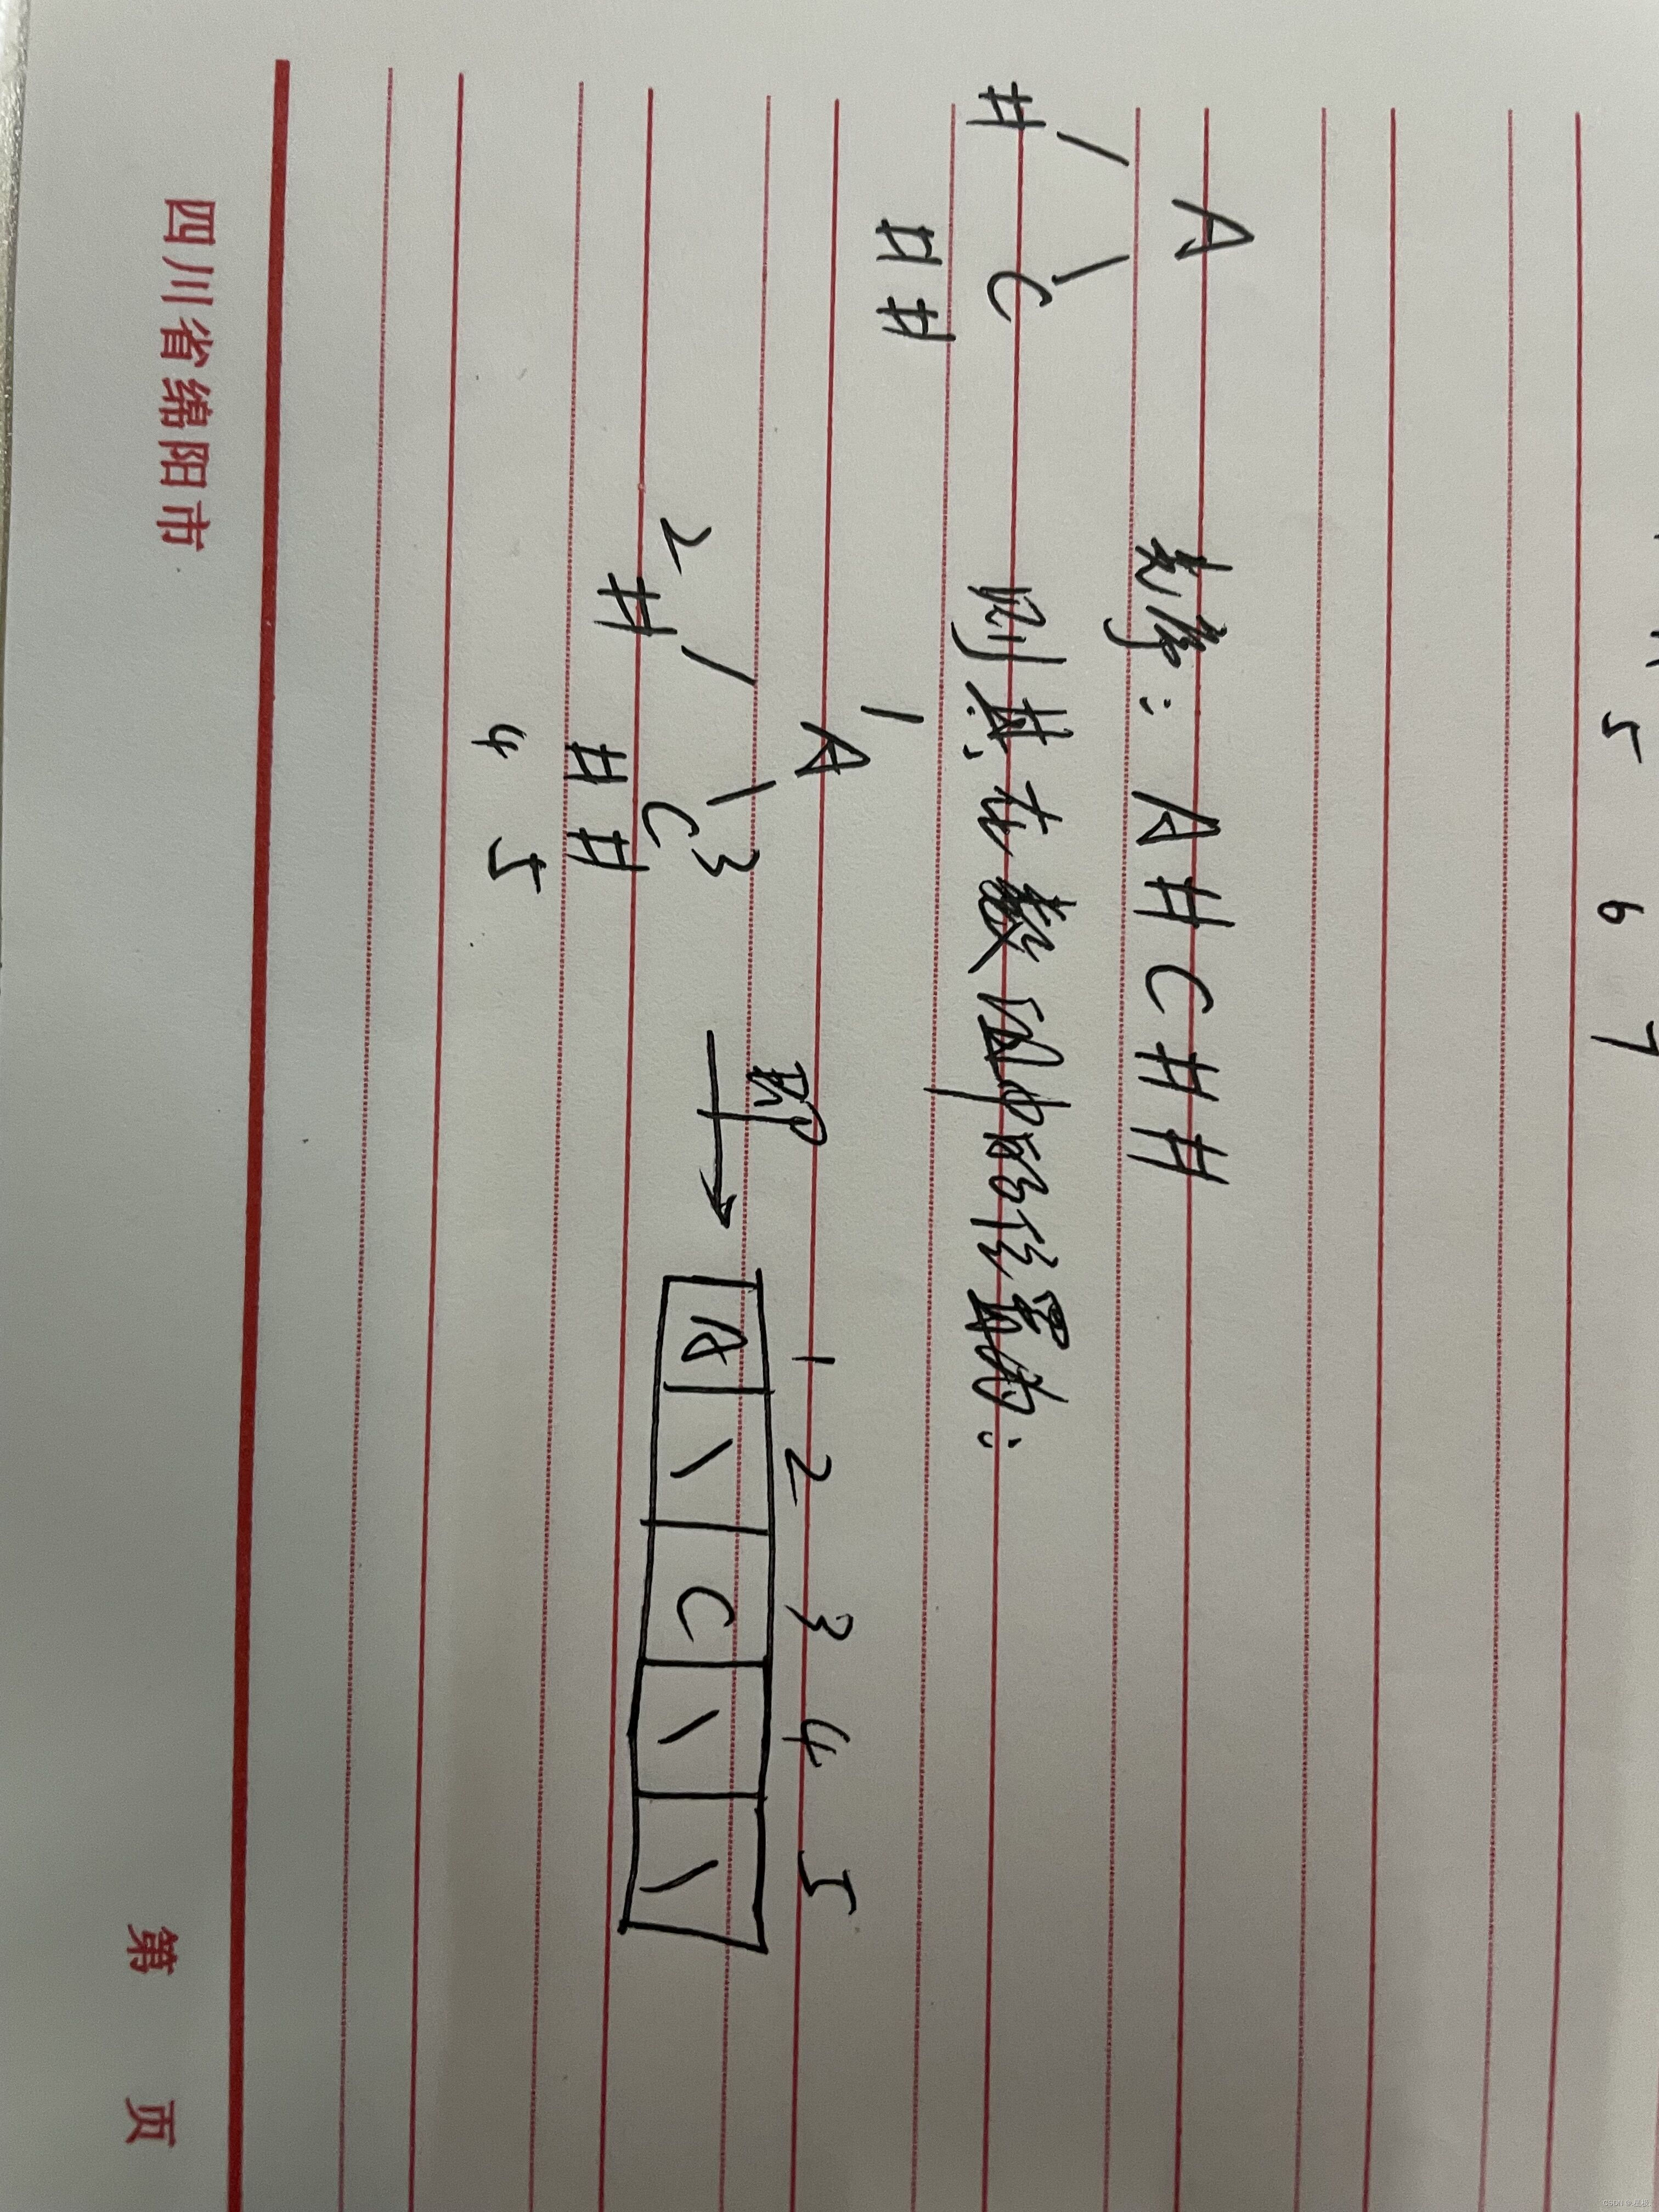 5 6 7
A 先序：A##C##
# C
# #
则其在数组中的位置为：
1
A
2 # C 3
# #
4 5
即
1 2 3 4 5
A \ C \ \
四川省绵阳市 第 页
CSDN